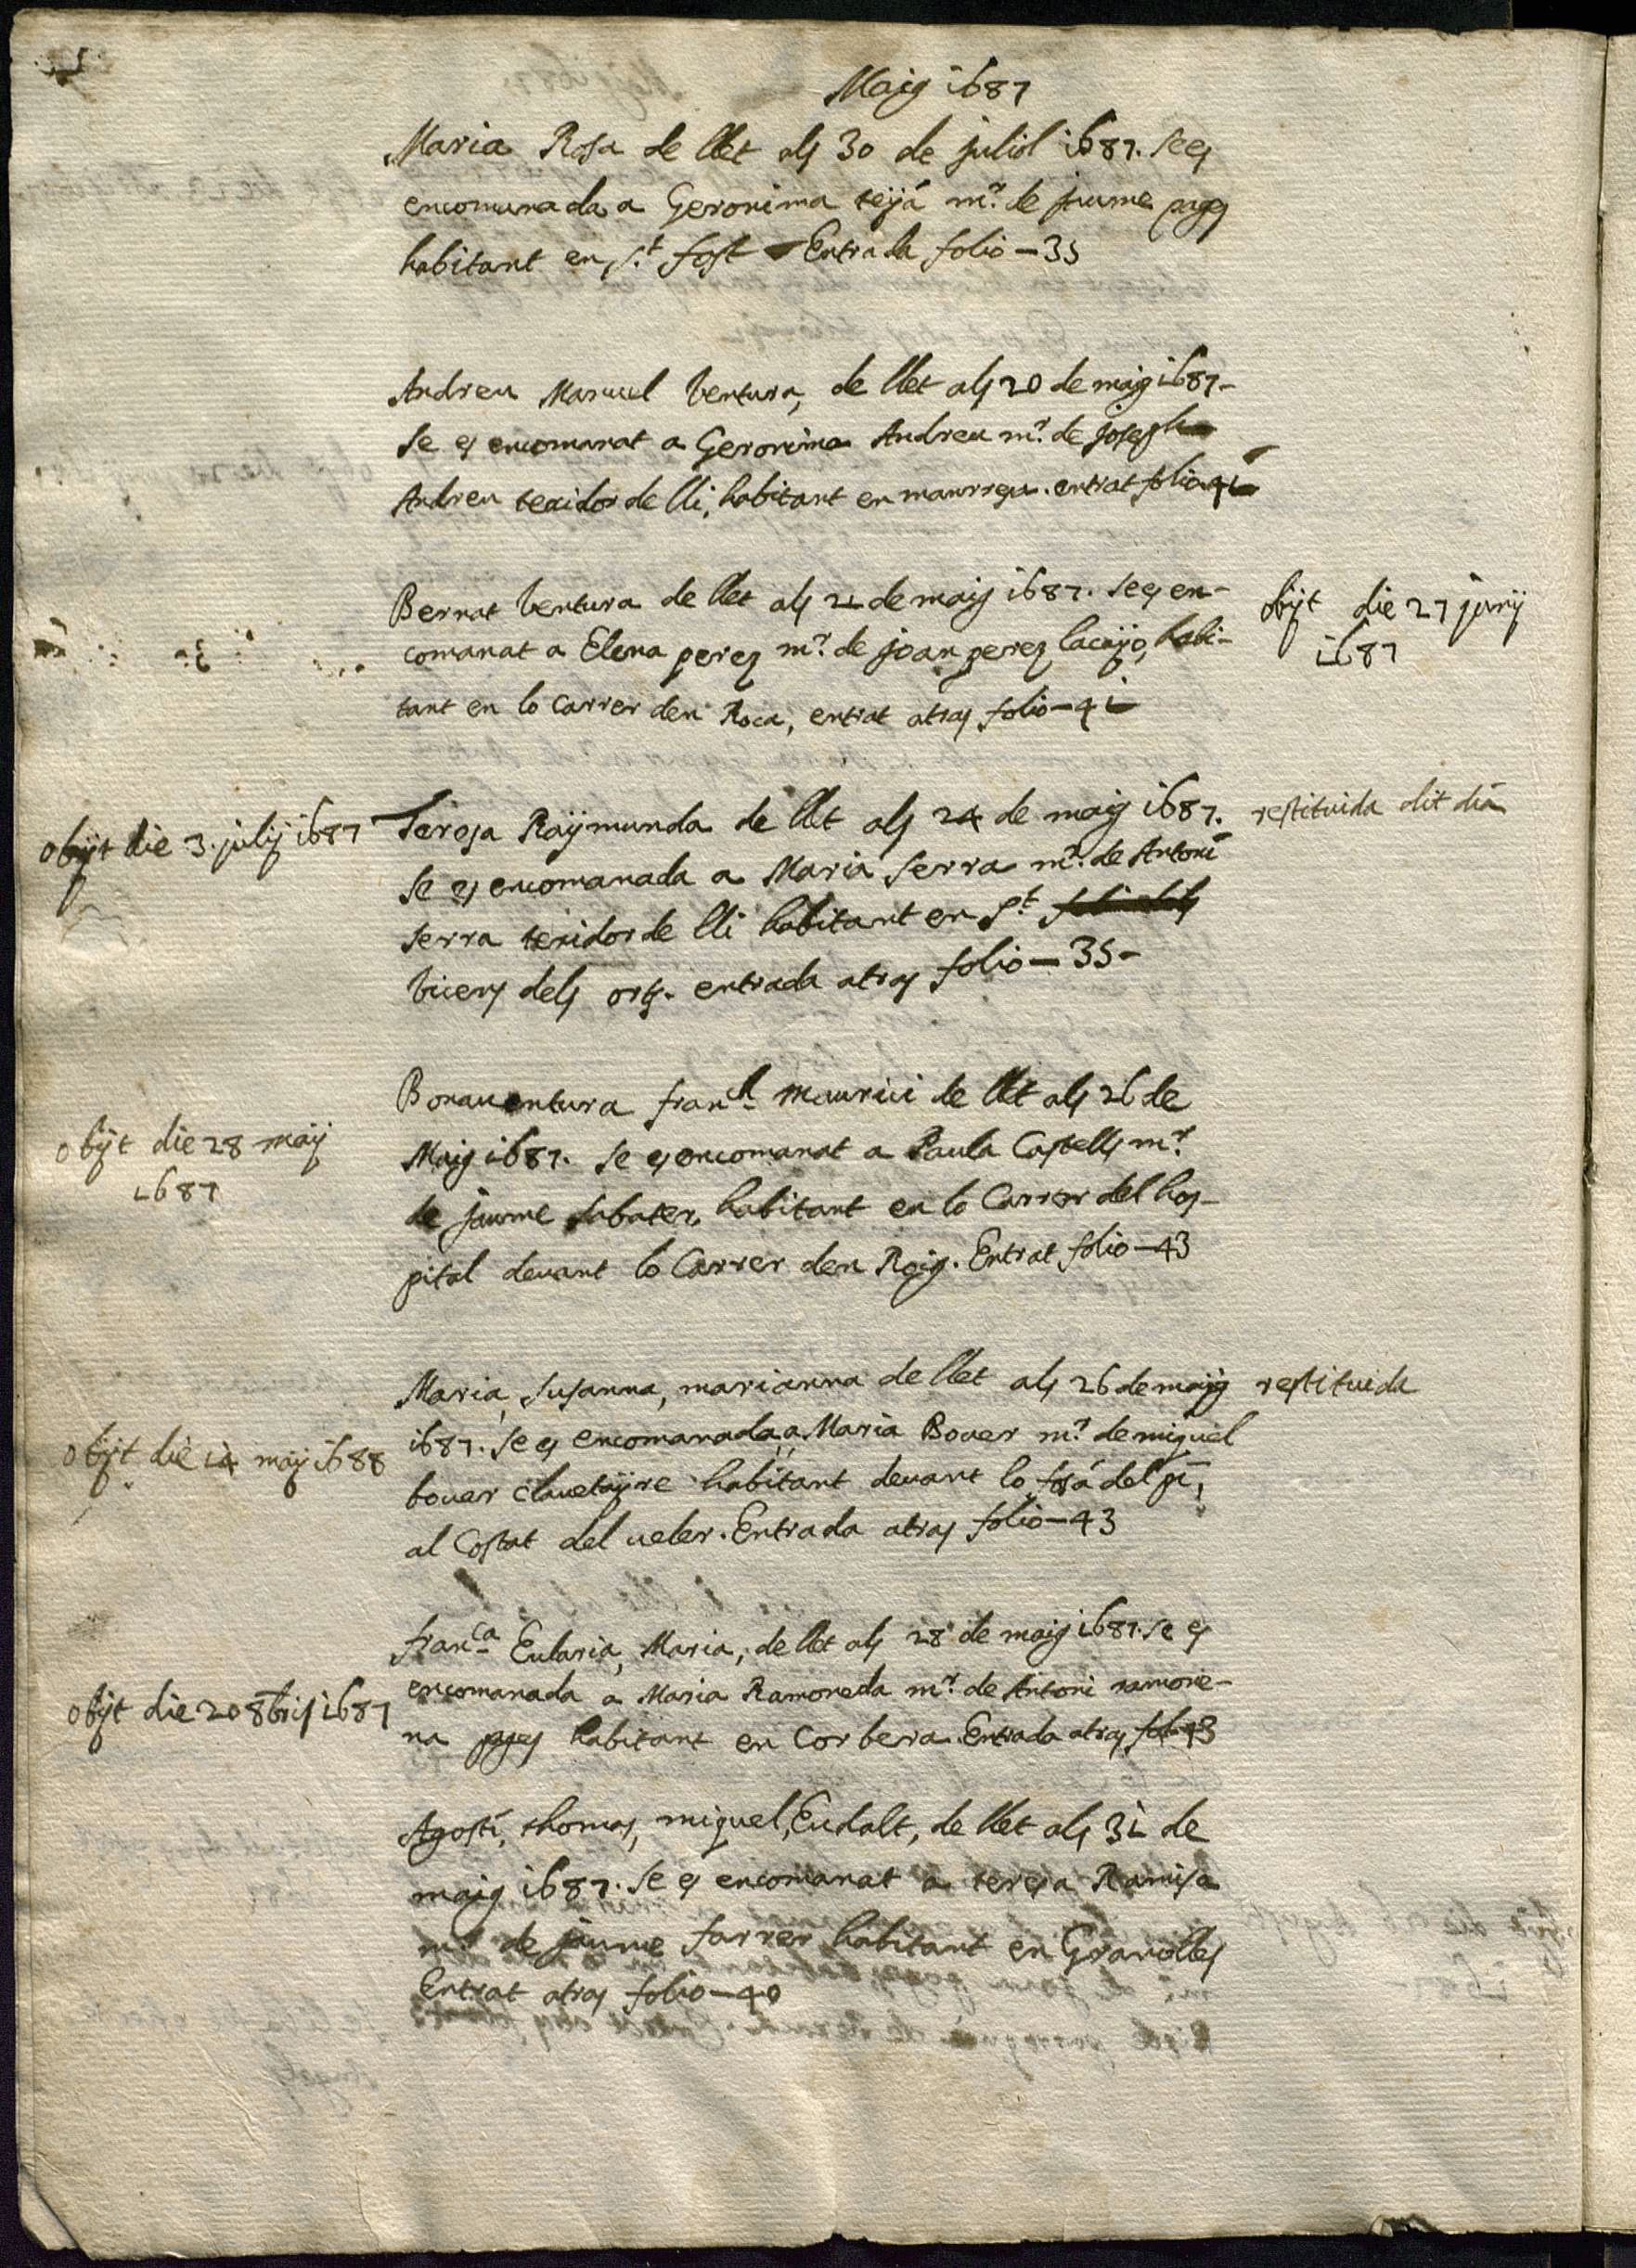 Maig 1687
Maria Rosa de llet als 30 de juliol 1687. se es
encomanada a Geronima teyá mr. de jaume pages
habitant en st. fost Entrada folio - 35
Andreu Manuel Ventura, de llet als 20 de maig 1687-
se es encomanat a Geronima Andreu mr. de joseph
Andreu texidor de lli, habitant en manresa. entrat folio 41
Bernat Ventura de llet als 21 de maig 1687. se es en-
comanat a Elena perez mr. de joan perez lacayo, habi-
tant en lo Carrer den Roca, entrat atras folio - 41
obijt die 27 junij
1687
obijt die 3. julij 1687
Teresa Raÿmunda de llet als 24 de maig 1687.
restituida dit dia
se es encomanada a Maria Serra mr. de Antoni
serra texidor de lli habitant en st.
Vicens dels orts. entrada atras folio - 35 -
Bonauentura franch. maurici de llet als 26 de
Maig 1687. se es encomanat a Paula Castells mr.
de jaume sabater, habitant en lo Carrer del hos-
pital deuant lo Carrer den Roig. Entrat folio - 43
obijt die 28 maij
1687
Maria, susanna, marianna de llet als 26 de maig
restituida
1687. se es encomanada a Maria Bouer mr. de miquel
bouer clauetayre habitant deuant lo fosá del pi,
al Costat del veler. Entrada atras folio - 43
obijt die 14 maij 1688
franca. Eularia, Maria, de llet als 28 de maig 1687. se es
encomanada a Maria Ramoneda mr. de Antoni ramone-
na pages habitant en Corbera. Entrada atras fol 43
obijt die 20 8bris 1687
Agostí, thomas, miquel, Eudalt, de llet als 31 de
maig 1687. se es encomanat a teresa Ramisa
mr. de jaume farrer habitant en Granolles
Entrat atras folio - 40